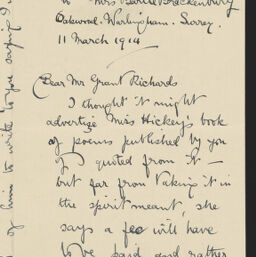 to Mrs
Oakwood. Warlingham. Surrey.
11 March 1914
Dear Mr Grant Richards
I thought it might
advertize Miss Hickey's book
of poems published by you
if I quoted from it —
but far from taking it in
the spirit meant, she
says a fee will have
to be paid and rather
of him to write to you saying I